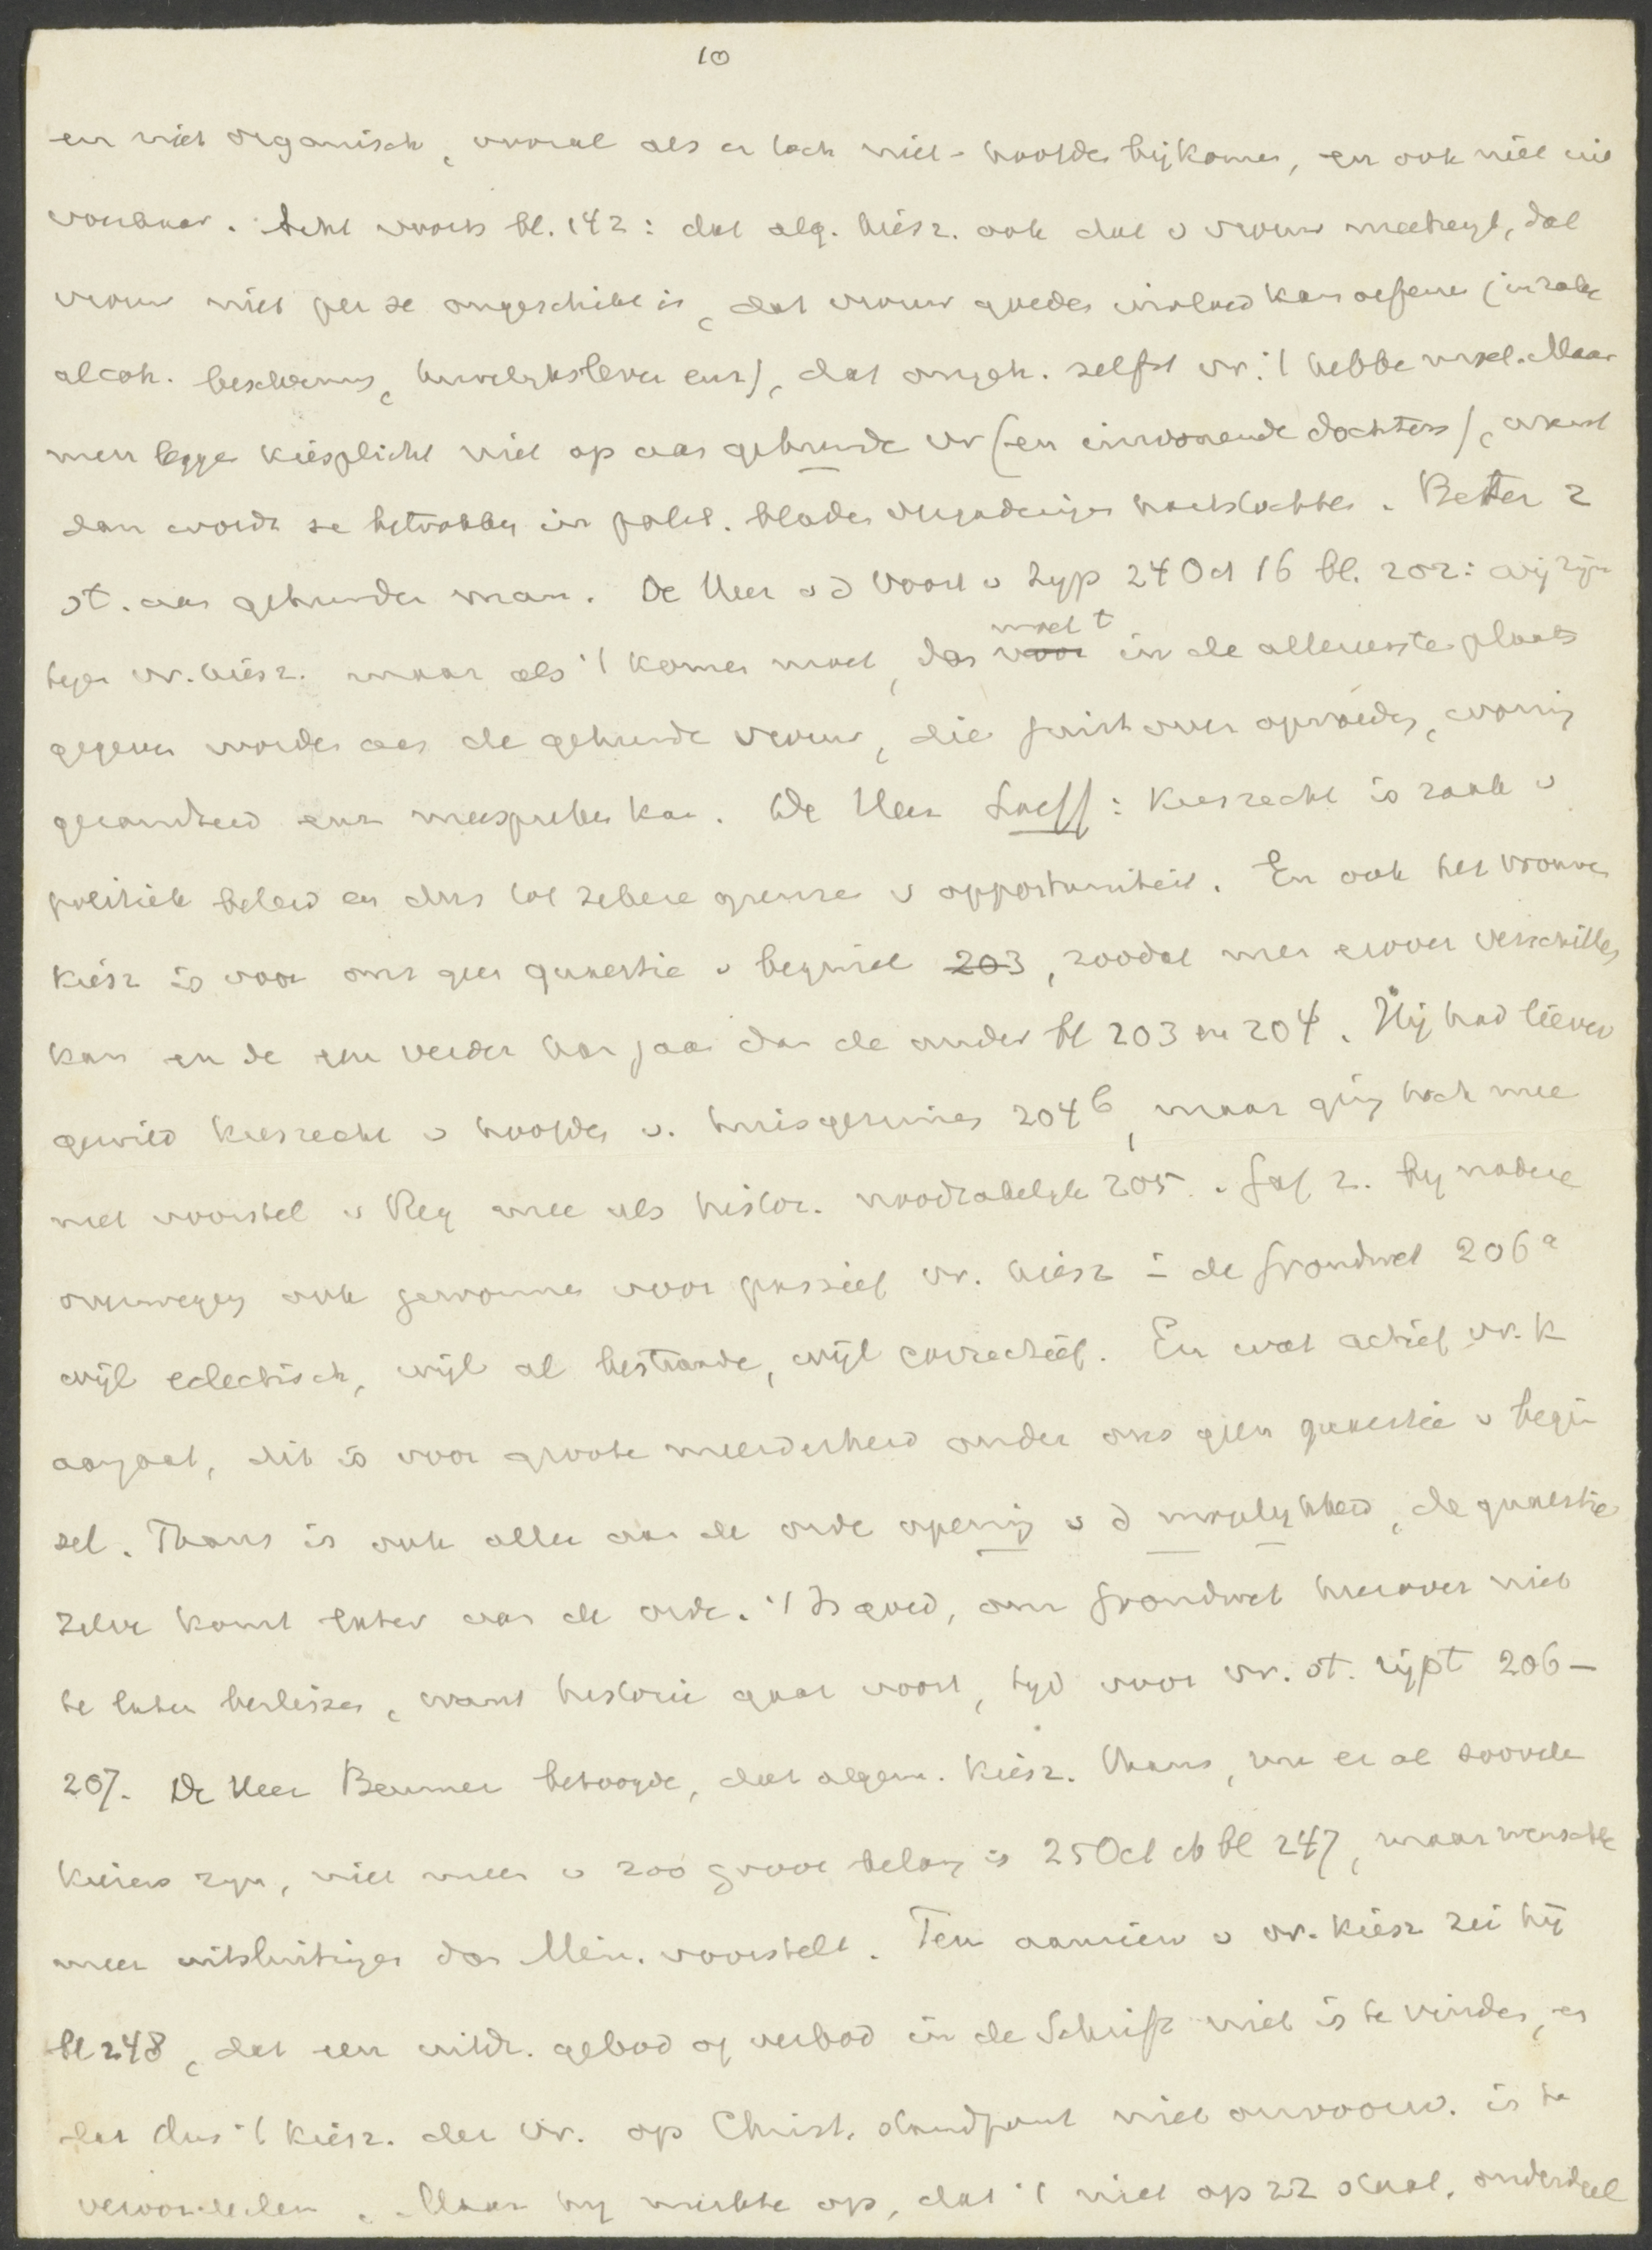 10
en niet organisch, vooral als er toch niet-hoofden bijkomen, en ook niet uit
voerbaar. Acht voorts bl. 142: dat alg. kiesr. ook dat v vrouw meebrengt, dat
vrouw niet per se ongeschikt is, dat vrouw goeden invloed kan oefenen (inzake
alcoh. bescherming, huwelijksleven enz), dat ongeh. zelfst vr. 't hebben moet. Maar
men legge kiesplicht niet op aan gehuwde vr (en inwonende dochters), want
dan wordt ze betrokken in polit. bladen vergaderingen . Better 2
st. aan gehuwden man. De Heer v d Voort v Zijp 24 Oct 16 bl. 202: wij zijn
tegen vr. kiesr. maar als 't komen moet, dan moet 't in de allereerste plaats
gegeven worden aan de gehuwde vrouw, die juist over opvoeding, woning
gezondheid enz meespreken kan. De Heer Loeff: Kiesrecht is zaak v
politiek beleid en dus tot zekere grenzen v opportuniteit. En ook het vrouwen
kiesr is voor ons geen quaestie v beginsel 203, zoodat men erover verschillen
kan en de een verder kan gaan dan de ander bl 203 en 204. Hij had liever
gewild kiesrecht v hoofden v. huisgezinnen 204 b, maar ging toch mee
met voorstel v Reg mee als histor. noodzakelijk 205. Gaf z. bij nadere
overweging ook gewonnen voor passief vr. kiesr in de Grondwet 206 a
wijl eclectisch, wijl al bestaande, wijl correctief. En wat actief vr. k
aangaat, dit is voor groote meerderheid onder ons geen quaestie v begin
sel. Thans is ook alleen aan de orde opening v d mogelijkheid, de quaestie
zelve komt later aan de orde. 't Is goed, om Grondwet hierover niet
te laten beslissen, want historie gaat voort, tijd voor vr. st. rijpt 206-
207. De Heer Beumer betoogde, dat algem. kiesr. thans, nu er al zoovele
kiezers zijn, niet meer v zoo groot belang is 25 Oct bl 247, maar wenschte
meer uitsluitingen dan Min. voorstelt. Ten aanzien v vr. kiesr zei hij
bl 248, dat een uitdr. gebod of verbod in de Schrift niet is te vinden, en
dat dus 't kiesr. der vr. op Christ. standpunt niet onvoorw. is te
veroordeelen. Maar hij merkte op, dat 't niet op zz staat, onderdeel